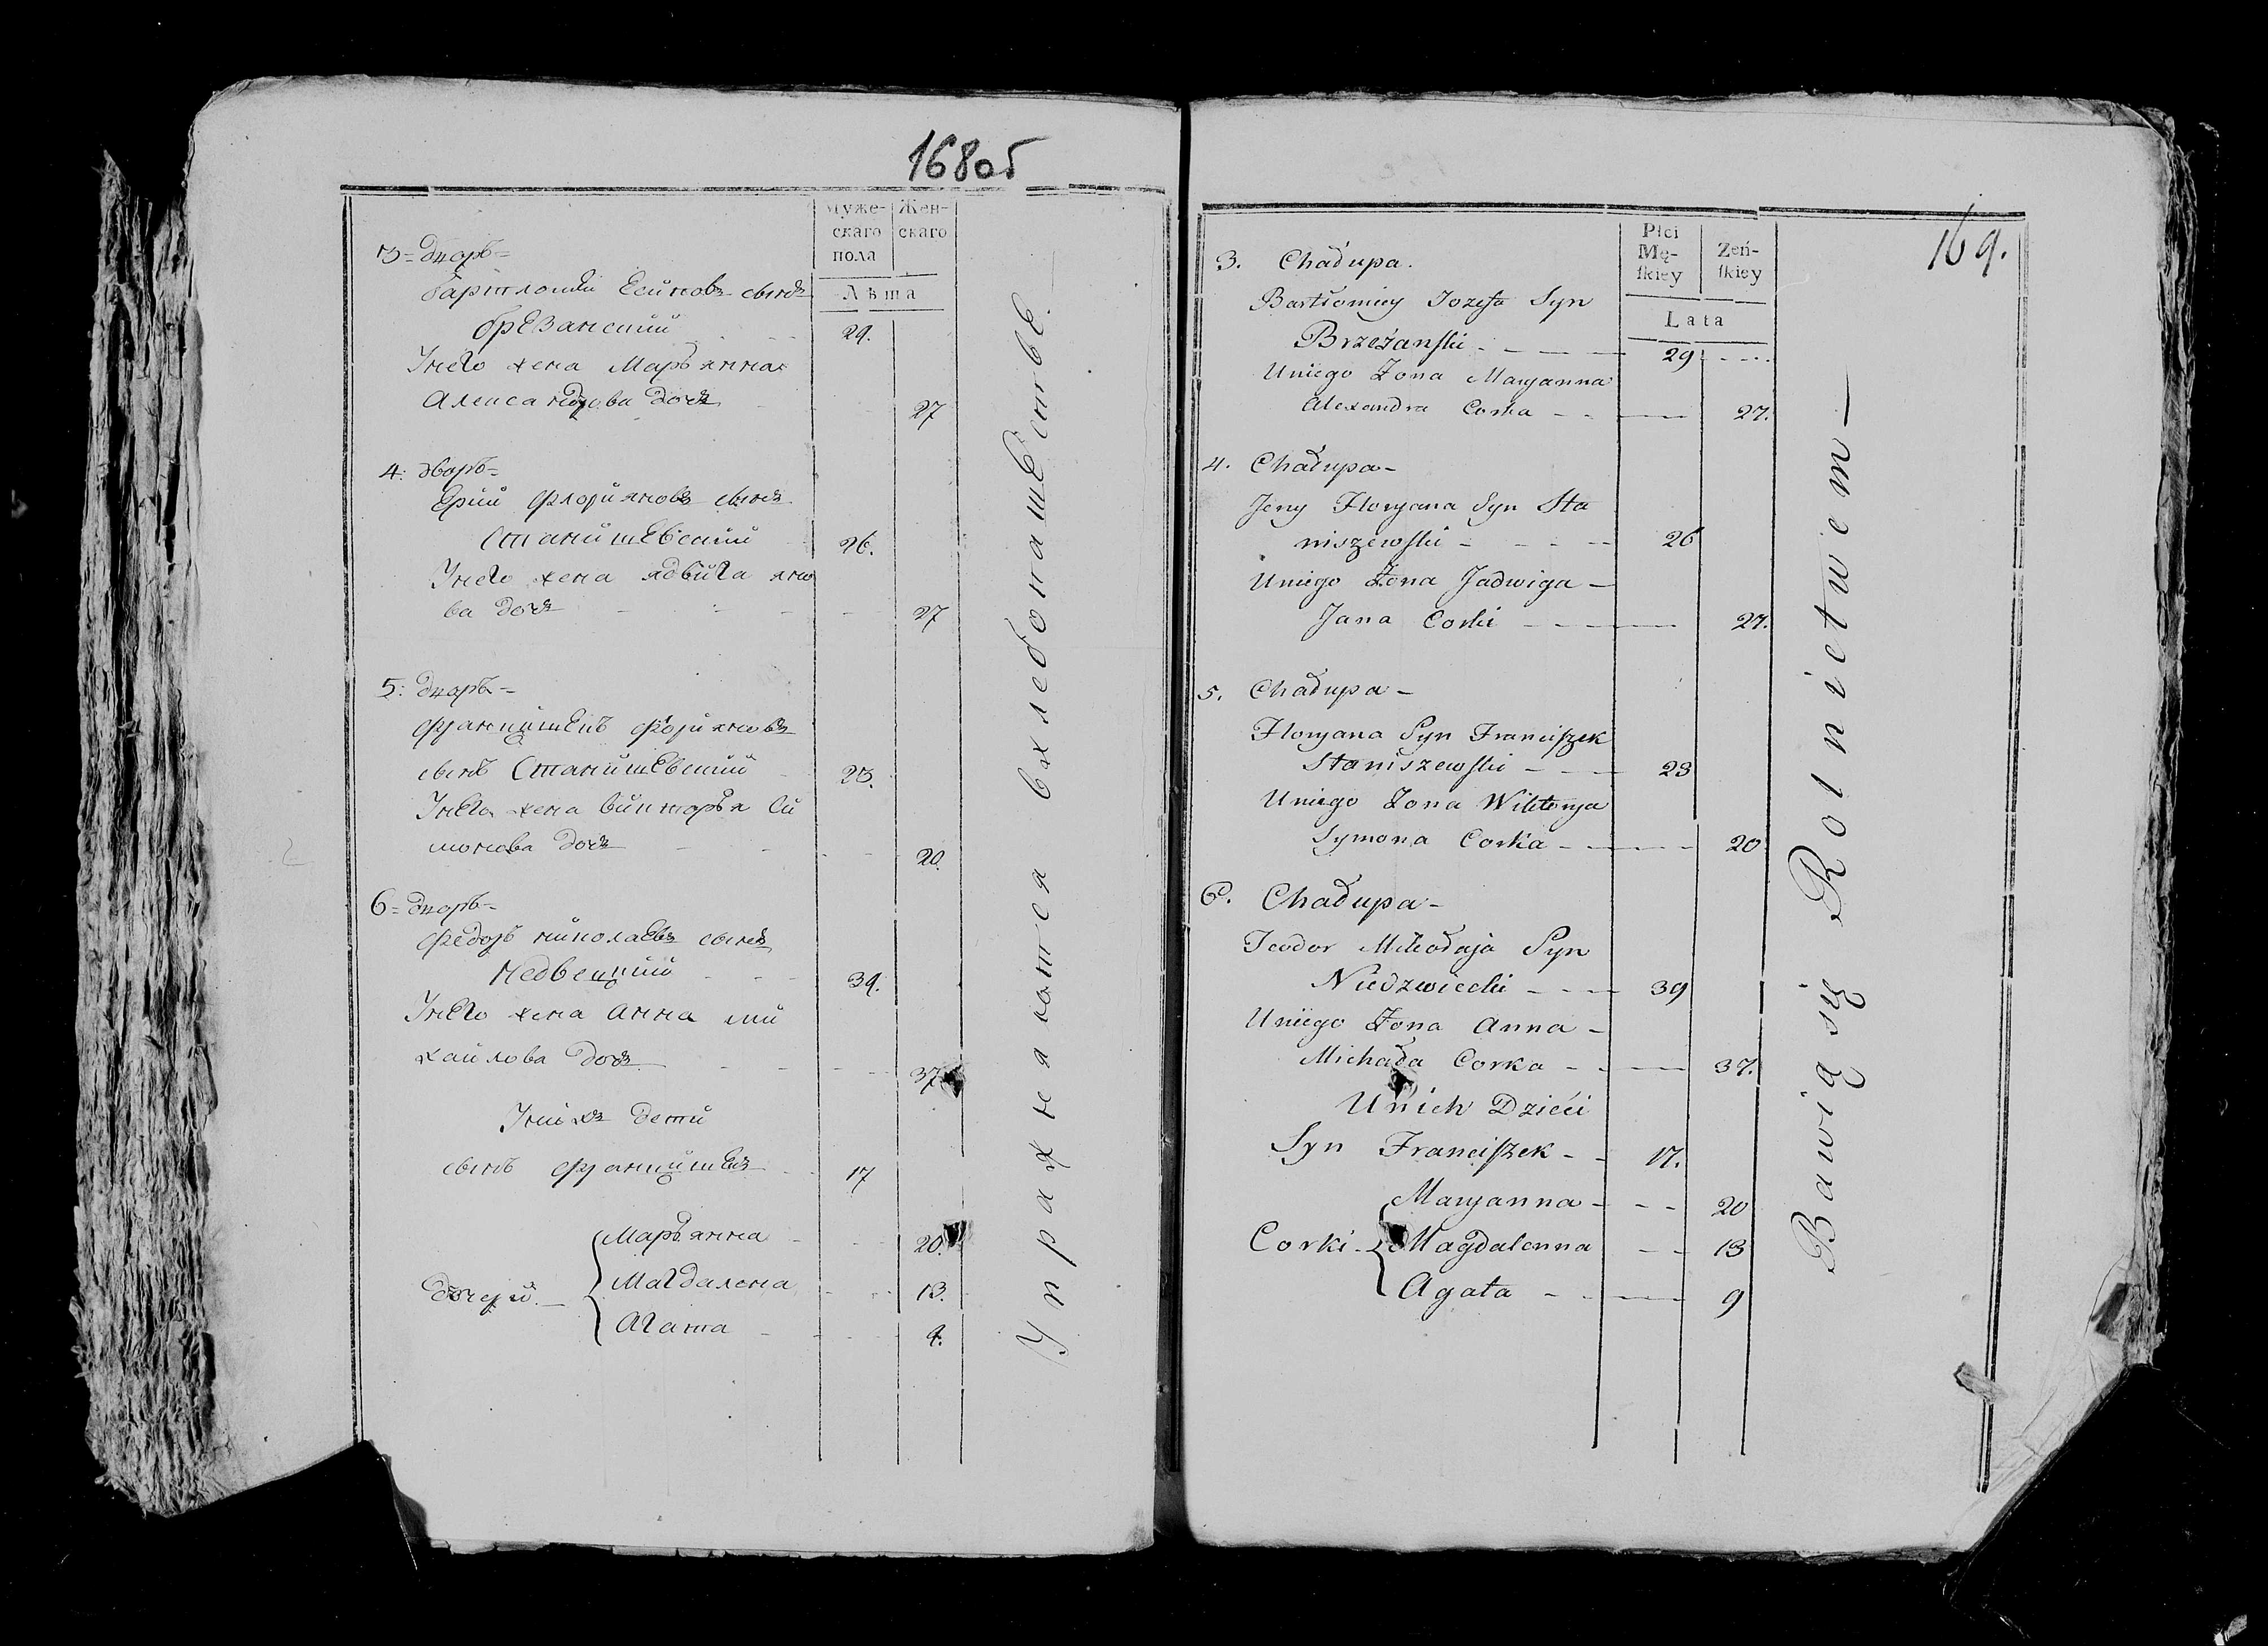 168об
Муже-
скаго
пола
Жен-
скаго
Лѣта
3= дворъ=
бартломѣй Есифовъ сынъ
брезанский 29.
Унего жена Маръянна
Александрова дочь 27
4: дворъ=
Ерий флорияновъ сынъ
Станишевский 26.
Унего жена ядвига яно
ва дочь 27
5: дворъ=
францишекъ флорияновъ
сынъ Станишевский 23.
Унего жена викторья Си
монова дочь 20.
6= дворъ=
федоръ николаевъ сынъ
Недвецкий 39.
Унего жена анна ми
хайлова дочь 37.
Унихъ дети
сынъ францишекъ 17
дочери
Маръянна 20.
Магдалена 13.
Агата 9.
Упражняются вхлебопашестве.
169.
Płci
Mę-
skiey
Zeń-
skiey
Lata
3. Chałupa.
Bartłomiey Jozefa Syn
Brzeżanski 29
Uniego Zona Maryanna
Alexandra Corka 27.
4. Chałupa
Jerzy Floryana Syn Sta
niszewski 26
Uniego Zona Jadwiga
Jana Corki 27.
5. Chałupa
Floryana Syn Franciszek
Staniszewski 23
Uniego Zona Wiktorya
Symona Corka 20
6. Chałupa
Teodor Mikołaja Syn
Niedzwiecki 39
Uniego Zona Anna
Michała Corka 37.
Unich Dzieci
Syn Franciszek 17.
Corki
Maryanna 20
Magdalenna 13
Agata 9
Bawią się Rolnictwem